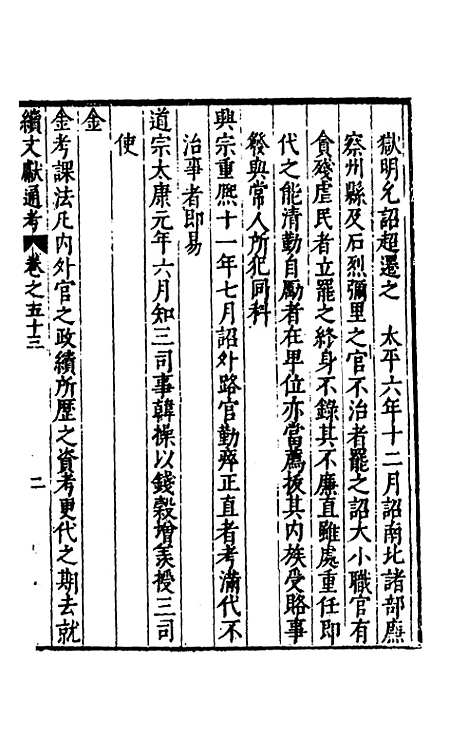 獄明允詔超遷之　太平六年十二月詔南北諸部廉
察州縣及石烈彌里之官不治者罷之詔大小職官有
貪殘虐民者立罷之終身不錄其不廉直雖處重任即
代之能清勤自勵者在卑位亦當薦拔其内族受賂事
發與常人所犯同科
興宗重熈十一年七月詔外路官勤瘁正直者考滿代不
治事者即易
道宗太康元年六月知三司事韓操以錢穀增羨授三司
使
金
金考課法凡内外官之政績所歷之資考更代之期去就
續文獻通考　卷之五十三　二